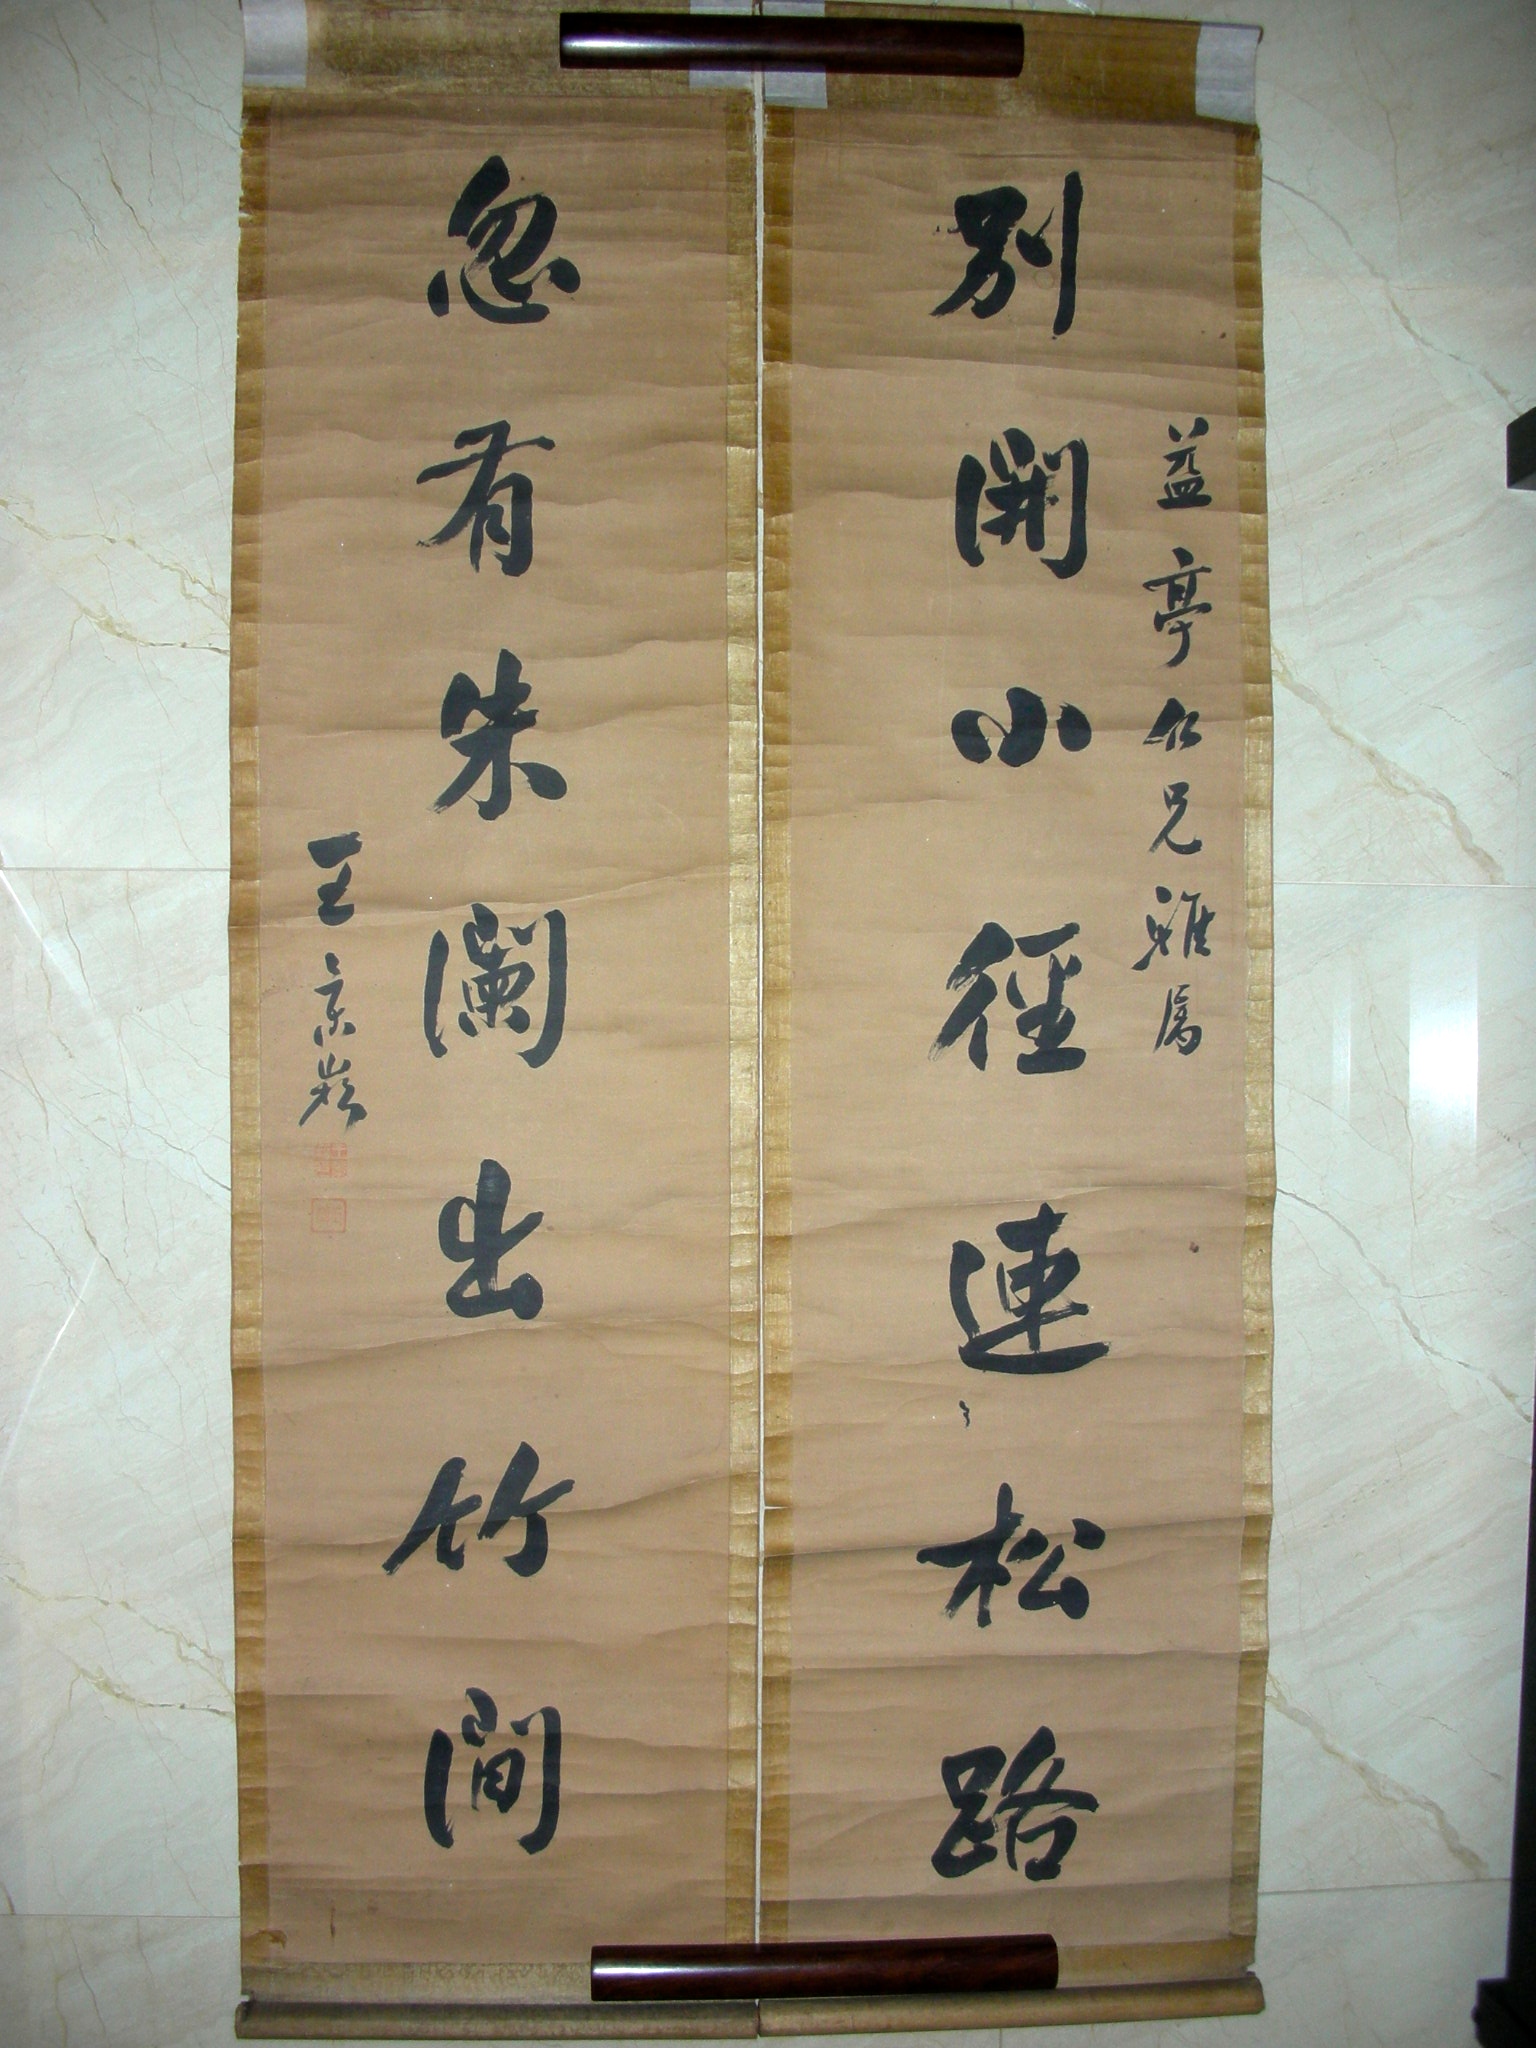 益亭仁兄雅属
别開小徑連松路
忽有朱闌出竹間
王景崧